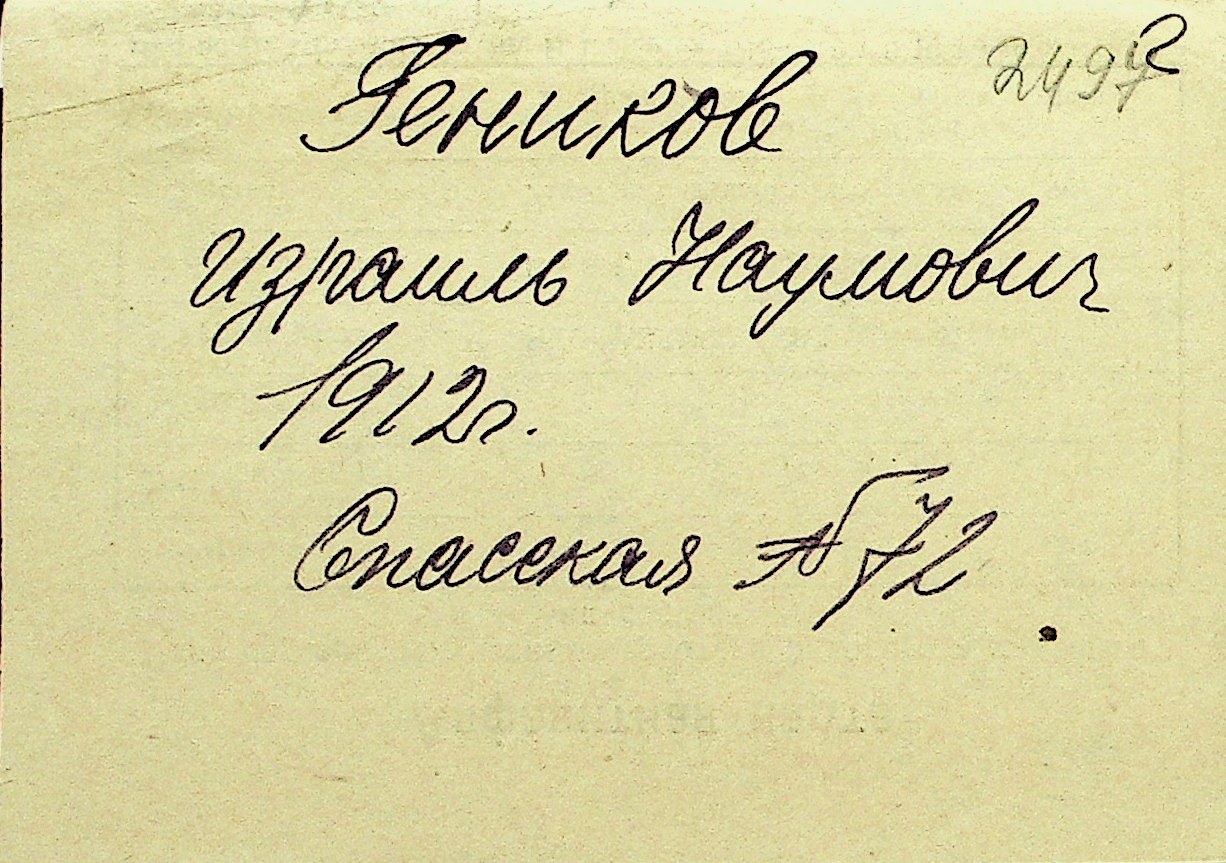 2497
Геников
Израиль Наумович
1912 г.
Спасская № 72